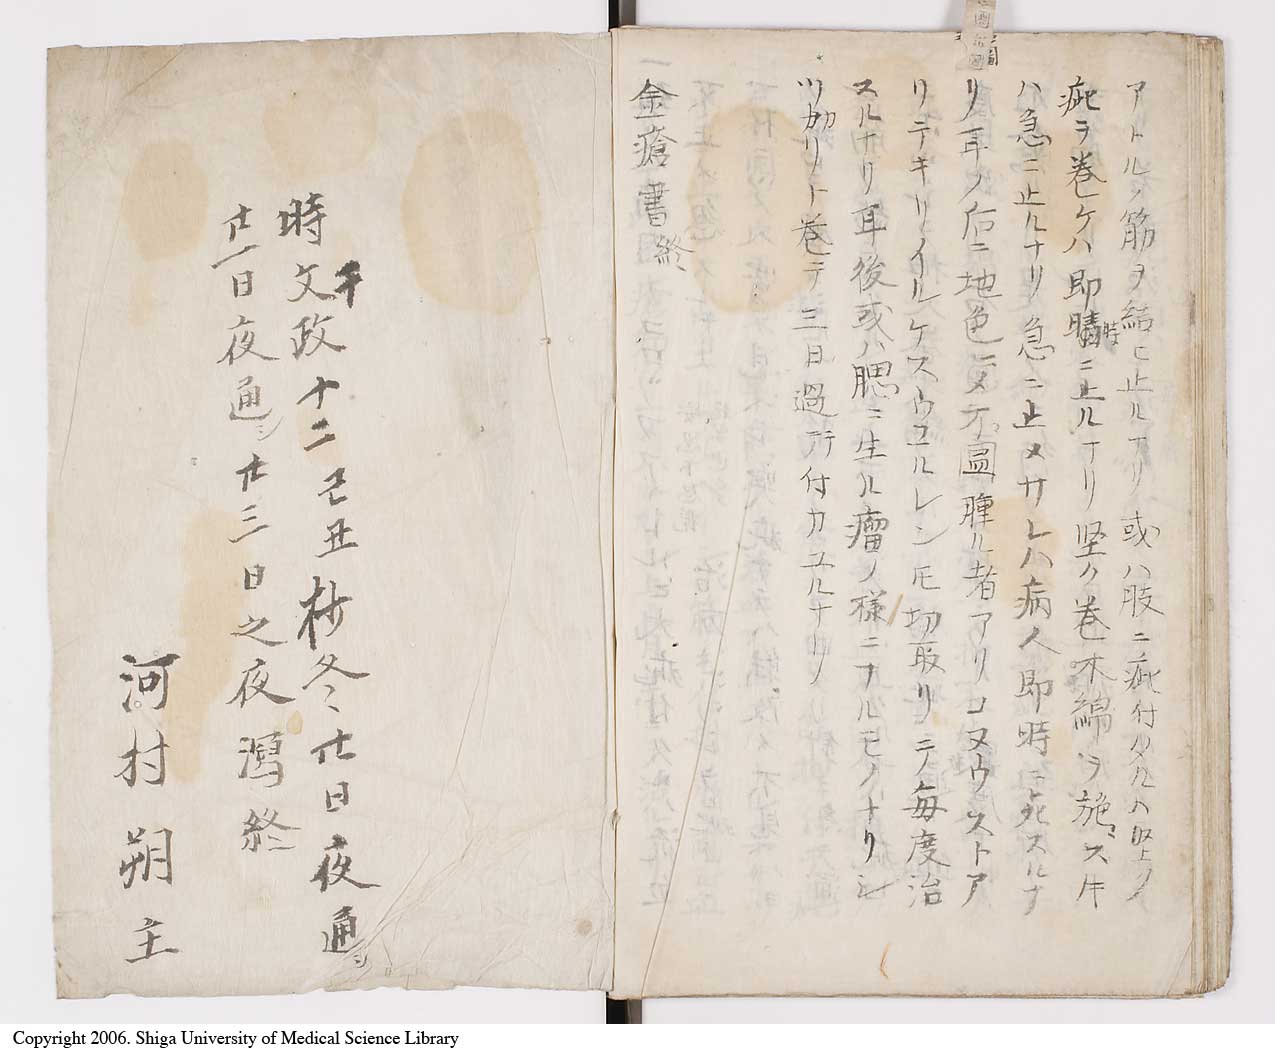 アトルノ筋ヲ結ヒ止ルナリ或ハ肢ニ疵付タルハ堅クノ
疵ヲ巻ケハ即時ニ止ルナリ堅ク巻木綿ヲ施ス牛
ハ急ニ止ルナリ急ニ止メサレハ病人即時ニ死スルナ
リ耳ノ后ニ地色ニメ不圖腫ル者アリコヌウストア
リテキリイルケスウエルレンモ切取リニテ毎度治
スルナリ耳後或ハ腮ニ生ル瘤ノ様ニナルモノナリシ
ツカリト巻テ三日過テ付カユルナリ
金瘡書終
時
干文政十二己丑杪冬廿日夜通シ
廿一日夜通シ廿三日之夜瀉終
河村朔主
Copyright 2006. Shiga University of Medical Science Library